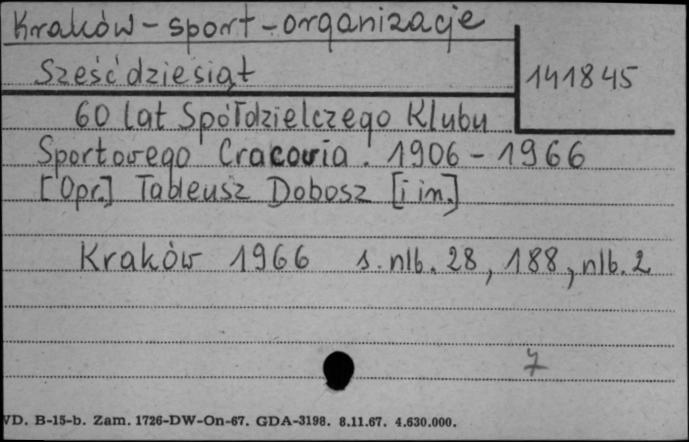 Kraków - sport - organizacje
Sześćdziesiąt
141845
60 lat Spółdzielczego Klubu
Sportowego Cracovia. 1906 - 1966
[Opr.] Tadeusz Dobosz [i in.]
Kraków 1966 s. nlb. 28, 188, nlb. 2
7
VD. B-15-b. Zam. 1726-DW-On-67. GDA-3198. 8.11.67. 4.630.000.